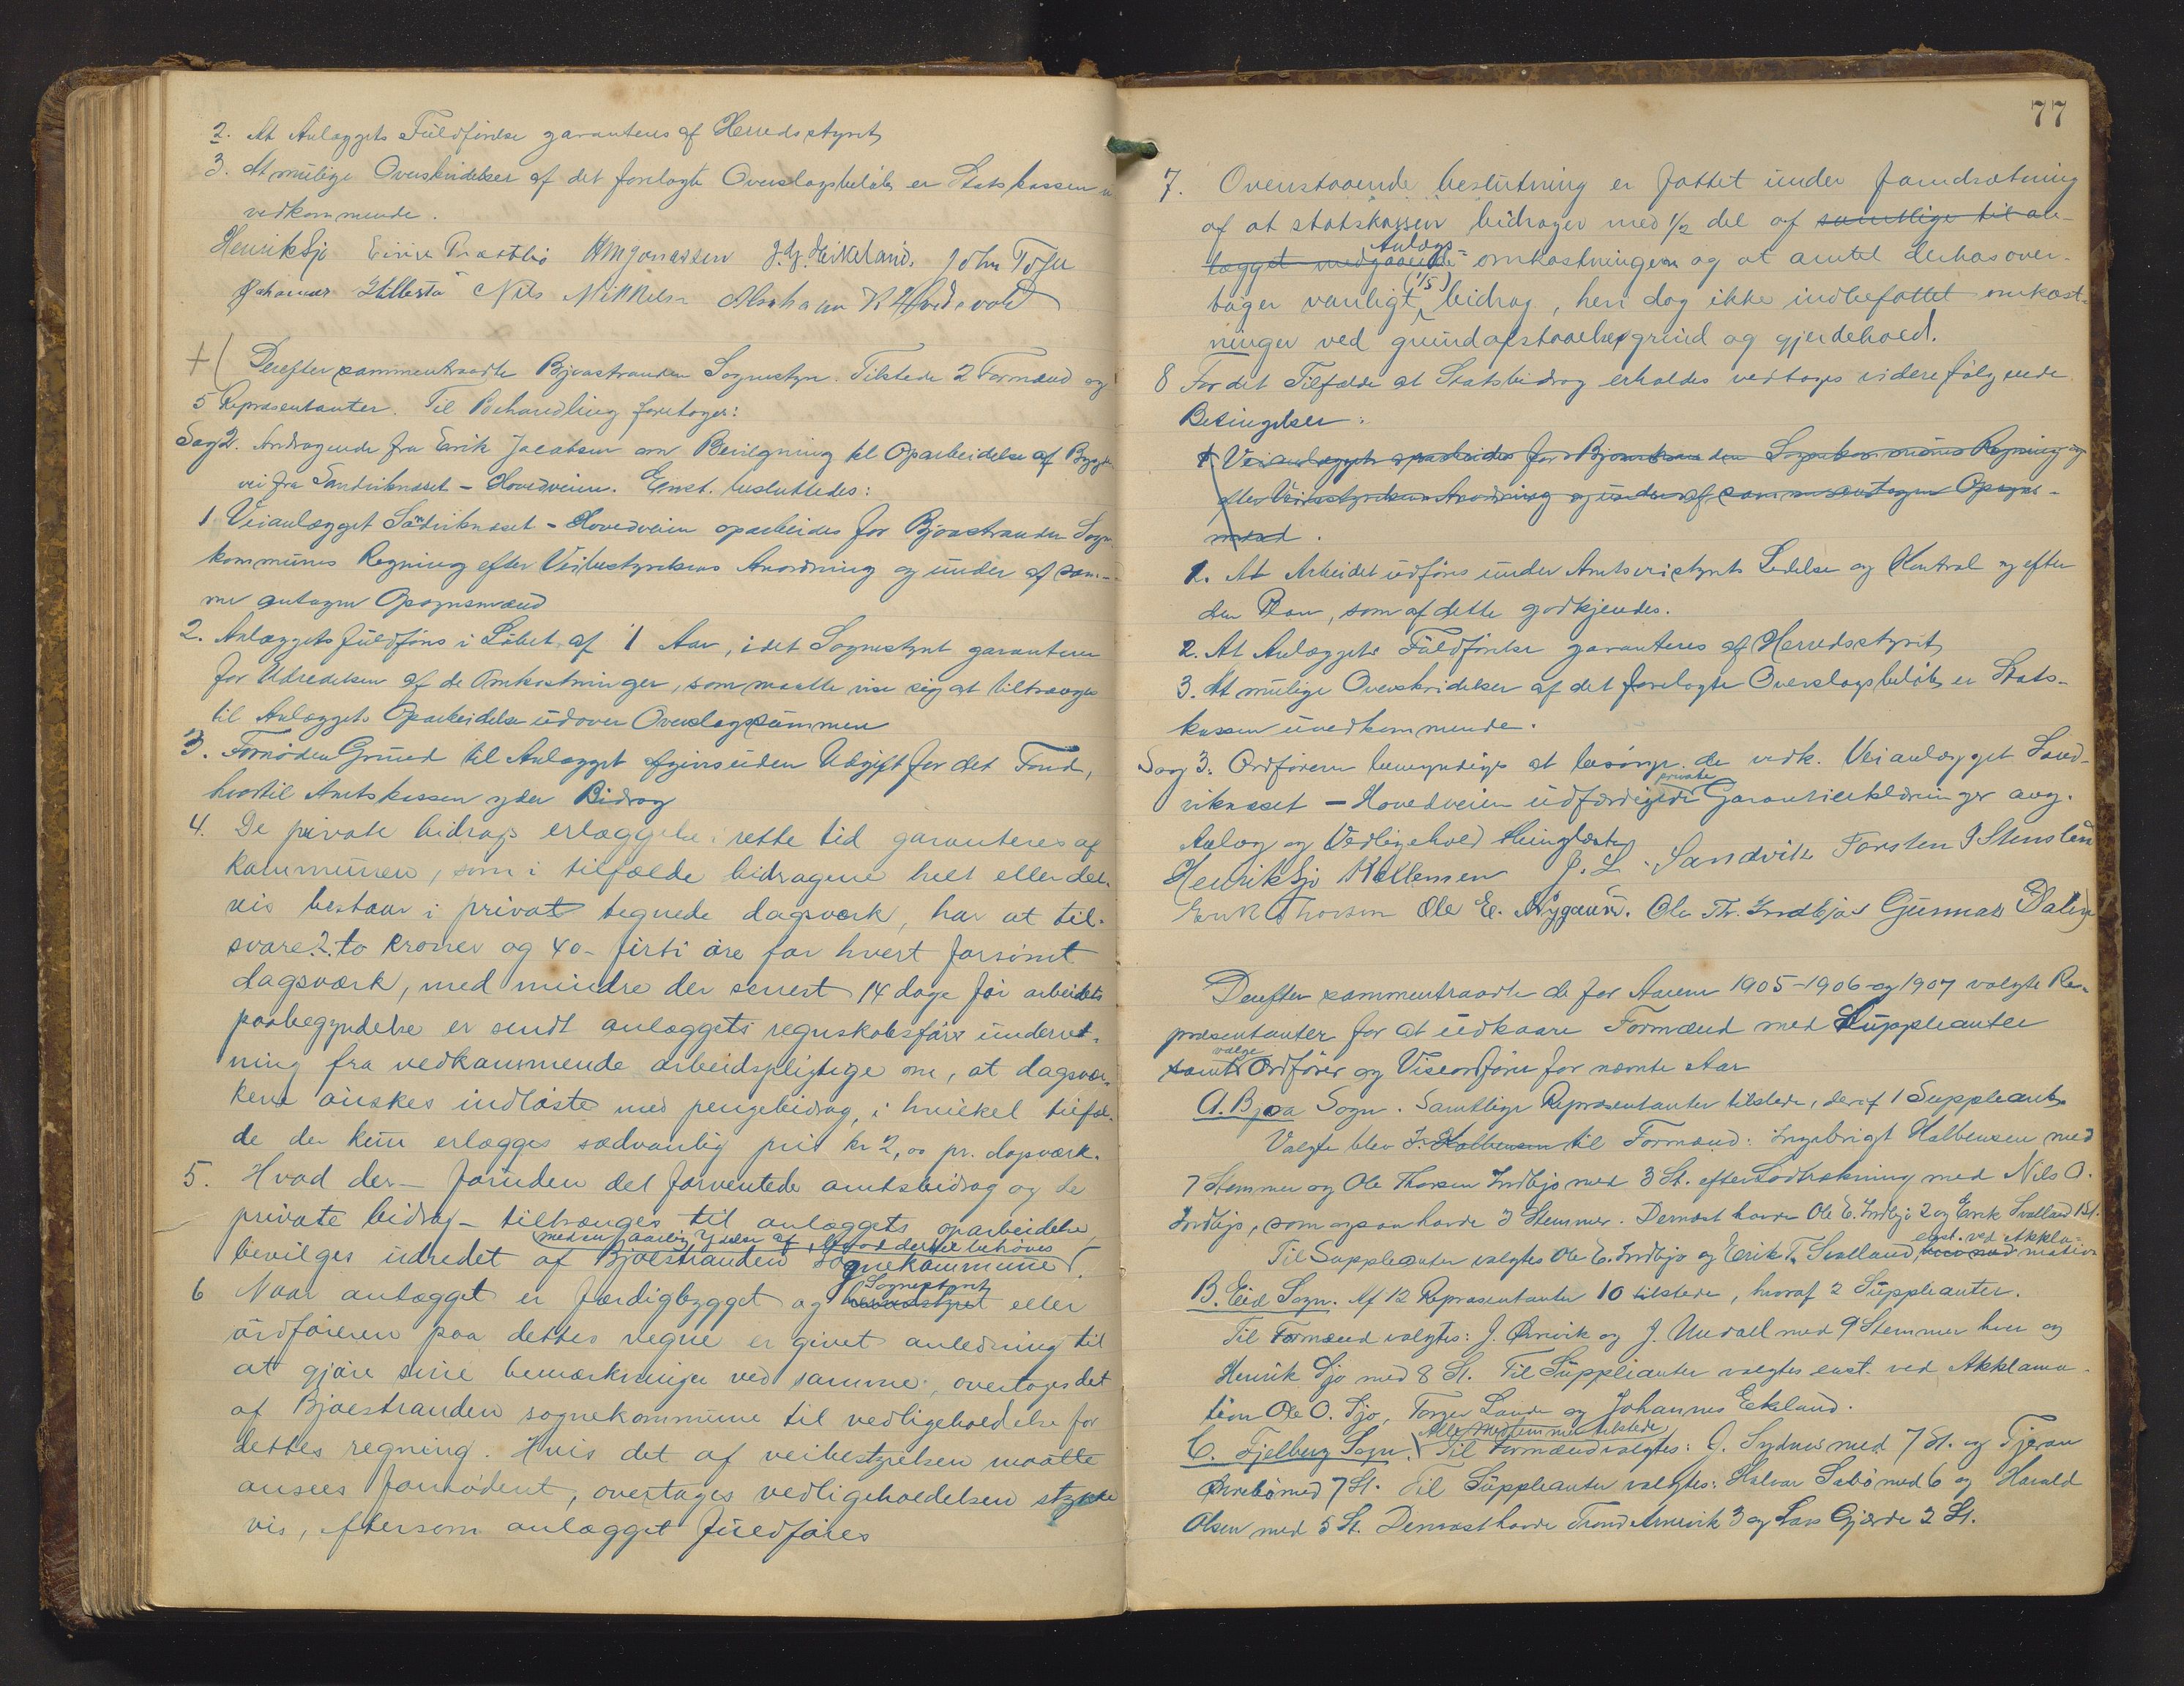 2. At Anlæggets Fuldførelse garanteres af Herredsstyret
3. At mulige Overskridelser af det forelagte Overslagsbeløb er Statskassen u
vedkommende.
Henrik Sjo HMJonassen J. J. Heikeland. John Tofte
Johannes Nils Mikkelsen Abraham
Derefter sammentraadte Bjoastranden Sognestyre. Tilstede 2 Formænd og
5 Repræsentanter. Til Behandling foretoges:
Sag 2. Andragende fra Erik Jacobsen om Bevilgning til Oparbeidelse af Bygde
vei fra Sandviknæset - Hovedveien. Enst. besluttedes:
1 Veianlægget Sandviknæset - Hovedveien oparbeides for Bjoastranden Sogne
kommunes Regning efter Veibestyrelsens Anordning og under af sam-
me antagen Opsynsmænd
2. Anlæggets fuldføres i Løbet af 1 Aar, idet Sognestyret garanterer
for Udredelsen af de Omkostninger, som maatte vise sig at tiltrænges
til Anlæggets Oparbeidelse udover Overslagssummen
3. Fornøden Grund til Anlægget afgives uden Udgift for det Fond,
hvortil Amtskassen yder Bidrag
4. De private bidrags erlæggelse i rette tid garanteres af
kommunen, som i tilfælde bidragene helt eller del-
vis bestaar i privat tegnede dagsværk, har at til-
svare 2 to kroner og 40 - firti øre for hvert forsømt
dagsværk, med mindre der senest 14 dage før arbeidets
paabegyndelse er sendt anlæggets regnskabsfører underret-
ning fra vedkommende arbeidspligtige om, at dagsvær-
kene ønskes indløste med pengebidrag, i hvilket tilfæl-
de der kun erlægges sædvanlig pris kr 2,00 pr. dagsværk.
5. Hvad der - foruden det forventede amtsbidrag og de
private bidrag - tiltrænges til anlæggets oparbeidelse,
med en aarlig Ydelse af dertil behøves
bevilges udredet af Bjoestranden sognekommune.
6 Naar anlægget er færdigbygget og Sognestyret herredsstyret eller
ordføreren paa dettes vegne er givet anledning til
at gjøre sine bemærkninger ved samme, overtages det
af Bjoestranden sognekommune til vedligeholdelse for
dettes regning. Hvis det af veibestyrelsen maatte
ansees fornødent, overtages vedligeholdelsen stykke
vis, eftersom anlægget fuldføres
77
7. Ovenstaaende beslutning er fattet under forudsætning
af at statskassen bidrager med 1/2 del af samtlige til an-
lægget medgaaende Anlægs- omkostninger og at amtet derhos over-
tager vanligt (1/5) bidrag, heri dog ikke indbefattet omkost-
ninger ved grundafstaaelse grind og gjerdehold.
8 For det Tilfælde at Statsbidrag erholdes vedtages videre følgende
Betingelser:
1 Veianlægget oparbeides for Bjoastranden Sognekommunes Regning og
efter Veibestyrelsens Anordning og under af samme antagen Opsyns-
mænd.
1. At Arbeidet udføres under Amtsveistyrets Ledelse og Kontrol og efter
den Plan, som af dette godkjendes.
2. At Anlæggets Fuldførelse garanteres af Herredsstyret
3. At mulige Overskridelser af det forelagte Overslagsbeløb er Stats-
kassen uvedkommende.
Sag 3. Ordføreren bemyndiges at besørge de vedk. Veianlægget Sand-
viknæset - Hovedveien udfærdigede private Garantierklæringer ang.
Anlæg og Vedligehold thinglæste
Henrik Sjo J. L. Sandvik Torsten J Stensland
Erik Thorsen Ole E. Nygaard. Ole Th. Indbjo Gunnar Dale
Derefter sammentraadte de for Aarene 1905-1906-og 1907 valgte Re-
præsentanter for at udkaare Formænd med Suppleanter
samt vælge Ordfører og Viseordfører for nævnte Aar
A. Bjoa Sogn. Samtlige Repræsentanter tilstede, deraf 1 Suppleant.
Valgte blev I. Halbensen til Formænd: Ingebrigt Halbensen med
7 Stemmer og Ole Thorsen Indbjo med 3 St. efter Lodtrækning med Nils O.
Indbjo, som ogsaa havde 3 Stemmer. Dernæst havde Ole E. Indbjo 2 og Erik Svalland 1 St.
Til Suppleanter valgtes Ole E. Indbjo og Erik T. Svalland, enst. ved Akkla-
mation
B. Eid Sogn. Af 12 Repræsentanter 10 tilstede, hvoraf 2 Suppleanter.
Til Formænd valgtes: J. Ørevik og J. Undall med 9 Stemmer hver og
Henrik Sjo med 8 St. Til Suppleanter valgtes enst. ved Akklama-
tion Ole O. Sjo, Torger Lande og Johannes Ekland.
Alle Medlemmer tilstede
C. Fjelberg Sogn. Til Formænd valgtes: O. Sydnes med 7 St. og Tjeran
Ørrebø med 7 St. Til Suppleanter valgtes: Halvor Sæbø med 6 og Harald
Olsen med 5 St. Dernæst havde Trond 3 og Lars Gjerde 2 St.